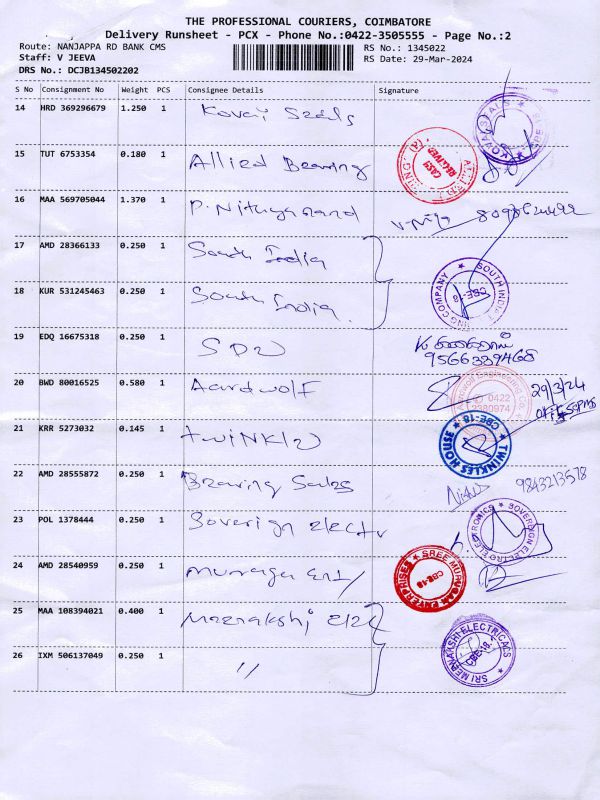 THE PROFESSIONAL COURIERS, COIMBATORE
Delivery Runsheet - PCX - Phone No.:0422-3505555 - Page No.:2
Route: NANJAPPA RD BANK CMS
RS No.: 1345022
Staff: V JEEVA
RS Date: 29-Mar-2024
DRS No.: DCJB134502202
S No Consignment No Weight PCS Consignee Details Signature
14 HRD 369296679 1.250 1 Kovai Seals
KOVAI SEALS
15 TUT 6753354 0.180 1 Allied Bearing
CASH RECEIVED
16 MAA 569705044 1.370 1 P. Nithyanand
17 AMD 28366133 0.250 1 South India
18 KUR 531245463 0.250 1 South India
SOUTH INDIA
COMPANY
CBE-18
19 EDQ 16675318 0.250 1
9566339468
20 BWD 80016525 0.580 1 Aardwolf
Engineering Co.
0422
2380974
29/3/24
21 KRR 5273032 0.145 1 twinkle
TWINKLES HOUSE
CBE-18
22 AMD 28555872 0.250 1 Bearing Sales
9843213578
23 POL 1378444 0.250 1 Soverign electr
SOVEREIGN ELECTRO ELECTRONICS
24 AMD 28540959 0.250 1 Muruga Ent/
SREE MURUGAN ENTERPRISES
CBE-18
25 MAA 108394021 0.400 1 Meenakshi Ele
SRI MEENAKSHI ELECTRICALS
CBE-18.
26 IXM 506137049 0.250 1 "